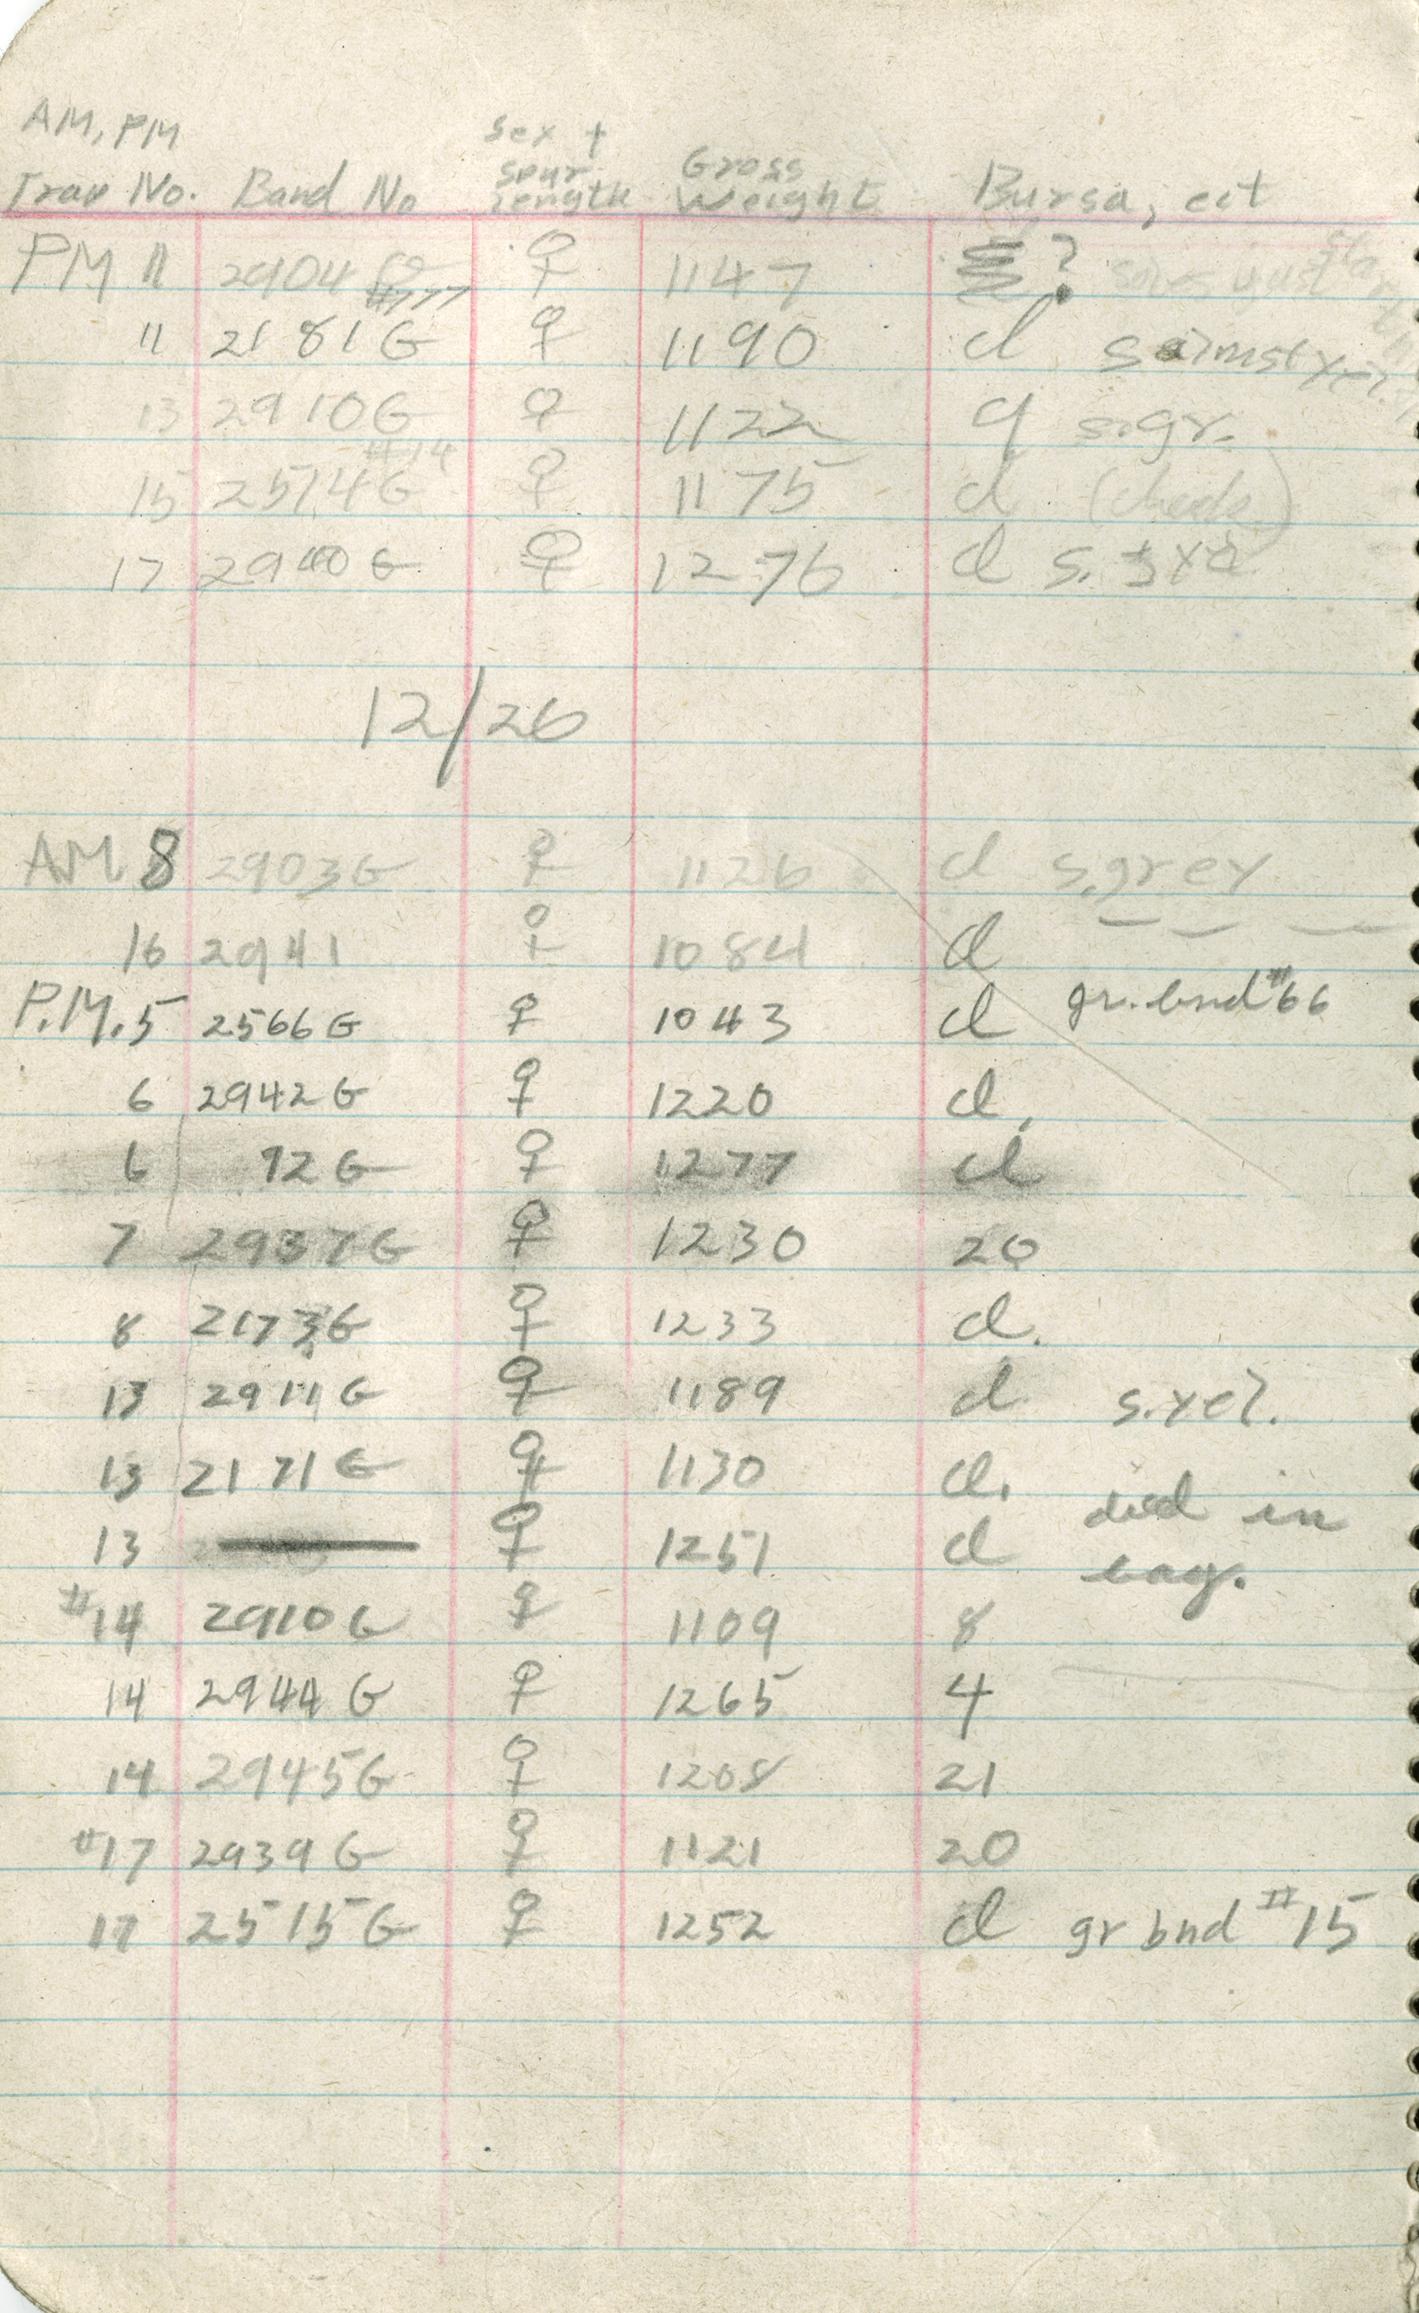 AM, PM
Trap No. Band No Sex + Spur length Gross Weight Bursa, ect
PM 11 2904 ♀ 1147 ?
11 2181 G ♀ 1190 cl
13 2910 G ♀ 1122 9 s.gr.
#14
15 2514 G ♀ 1175 cl (check)
17 2940 G ♀ 1276 cl s.
12/26
AM 8 2903 G ♀ 1126 cl s.grey
16 2941 ♀ 1084 cl
P.M. 5 2566 G ♀ 1043 cl gr. bnd #66
6 2942 G ♀ 1220 cl.
6 92 G ♀ 1277 cl
7 2937 G ♀ 1230 20
8 2173 G ♀ 1233 cl.
13 2911 G ♀ 1189 cl s.yel.
13 2171 G ♀ 1130 cl.
13 ♀ 1251 cl died in bag.
#14 2910 G ♀ 1109 8
14 2944 G ♀ 1265 4
14 2945 G ♀ 1208 21
#17 2939 G ♀ 1121 20
17 2515 G ♀ 1252 cl gr bnd #15